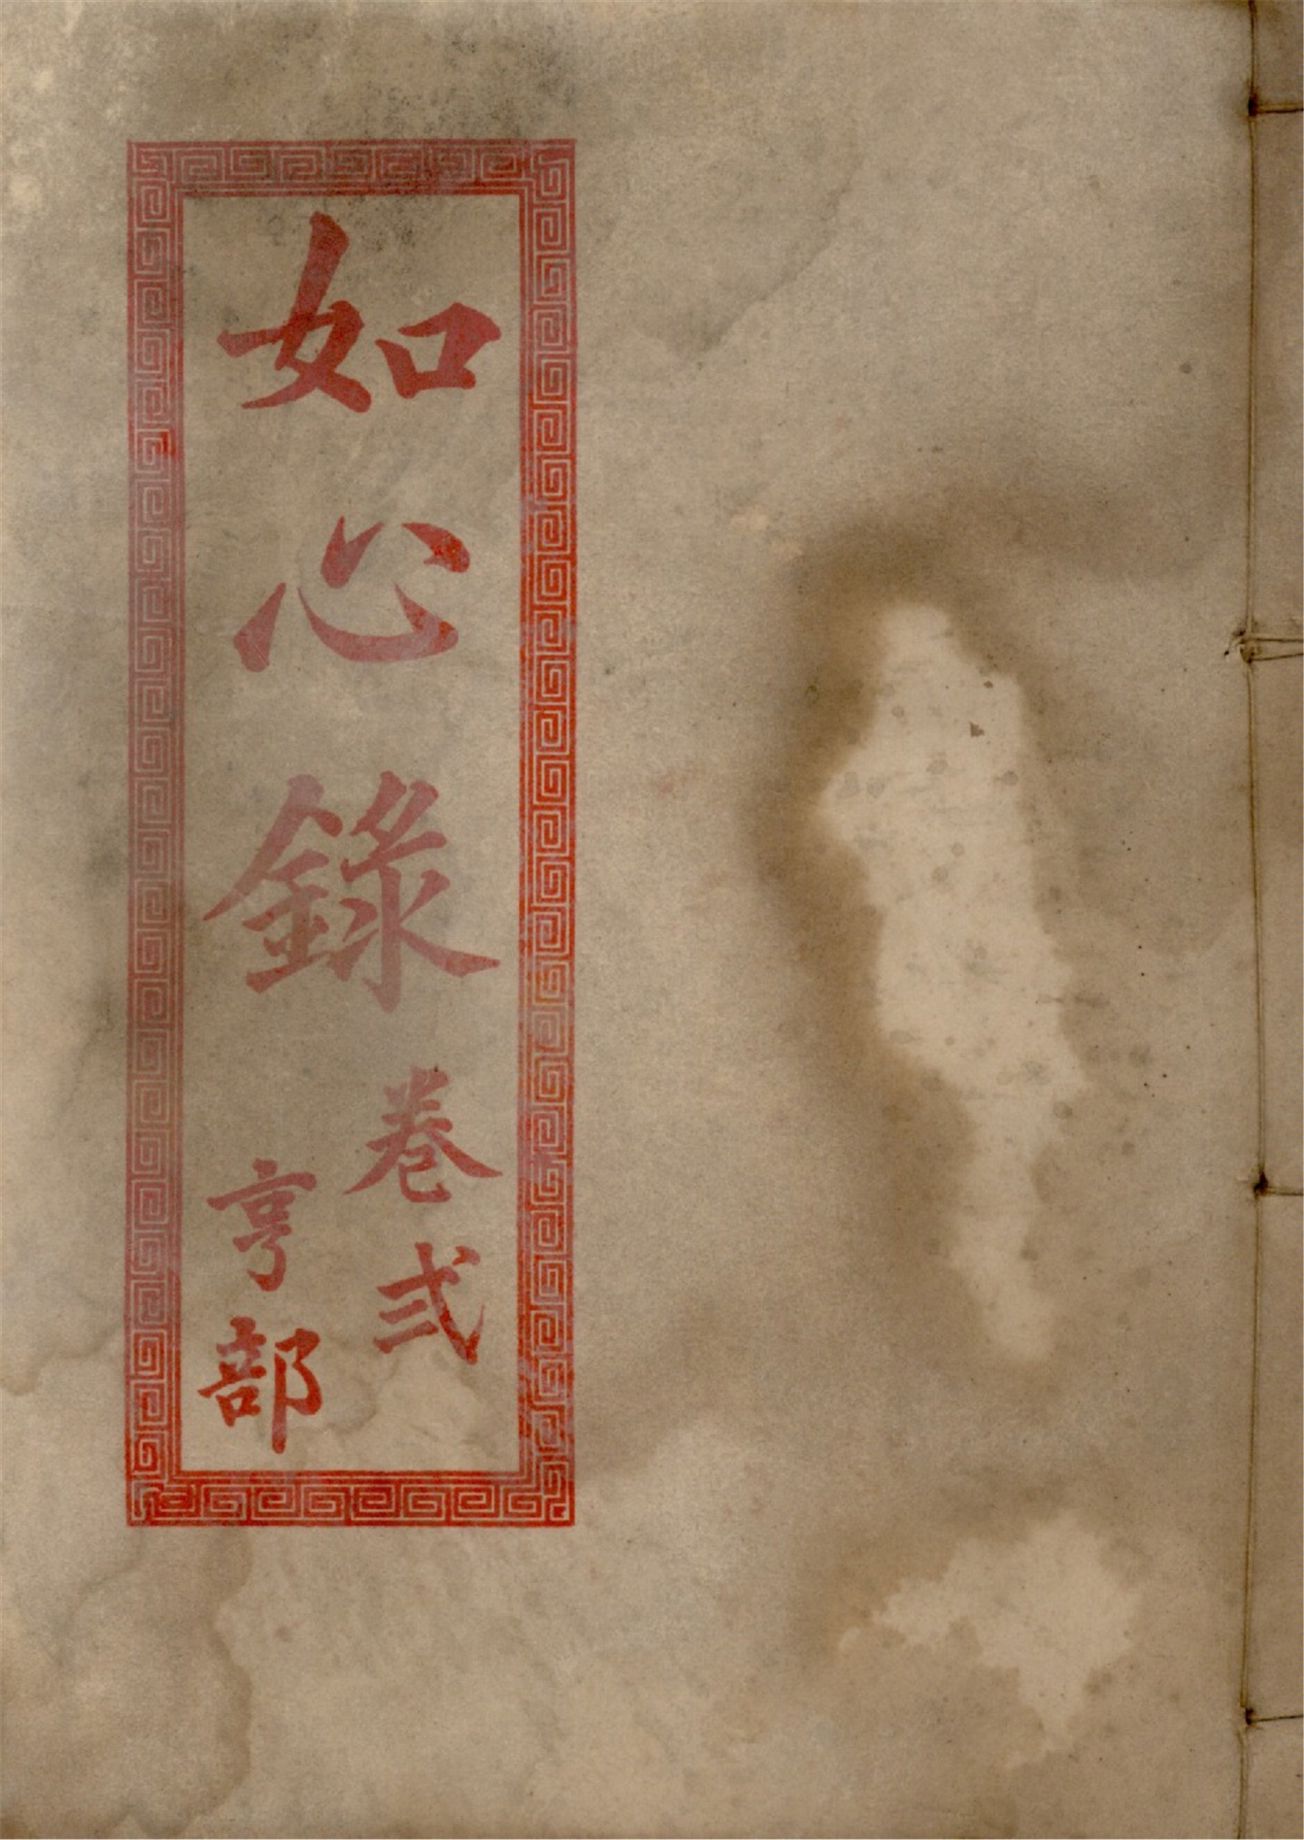 如心錄
卷弍
亨部